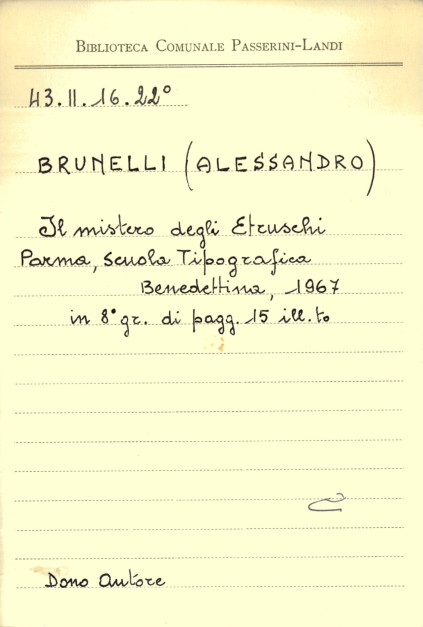 BIBLIOTECA COMUNALE PASSERINI-LANDI
43.II.16.22°
BRUNELLI (ALESSANDRO)
Il mistero degli Etruschi
Parma, Scuola Tipografica
Benedettina, 1967
in 8° gr. di pagg. 15 ill.to
Dono Autore